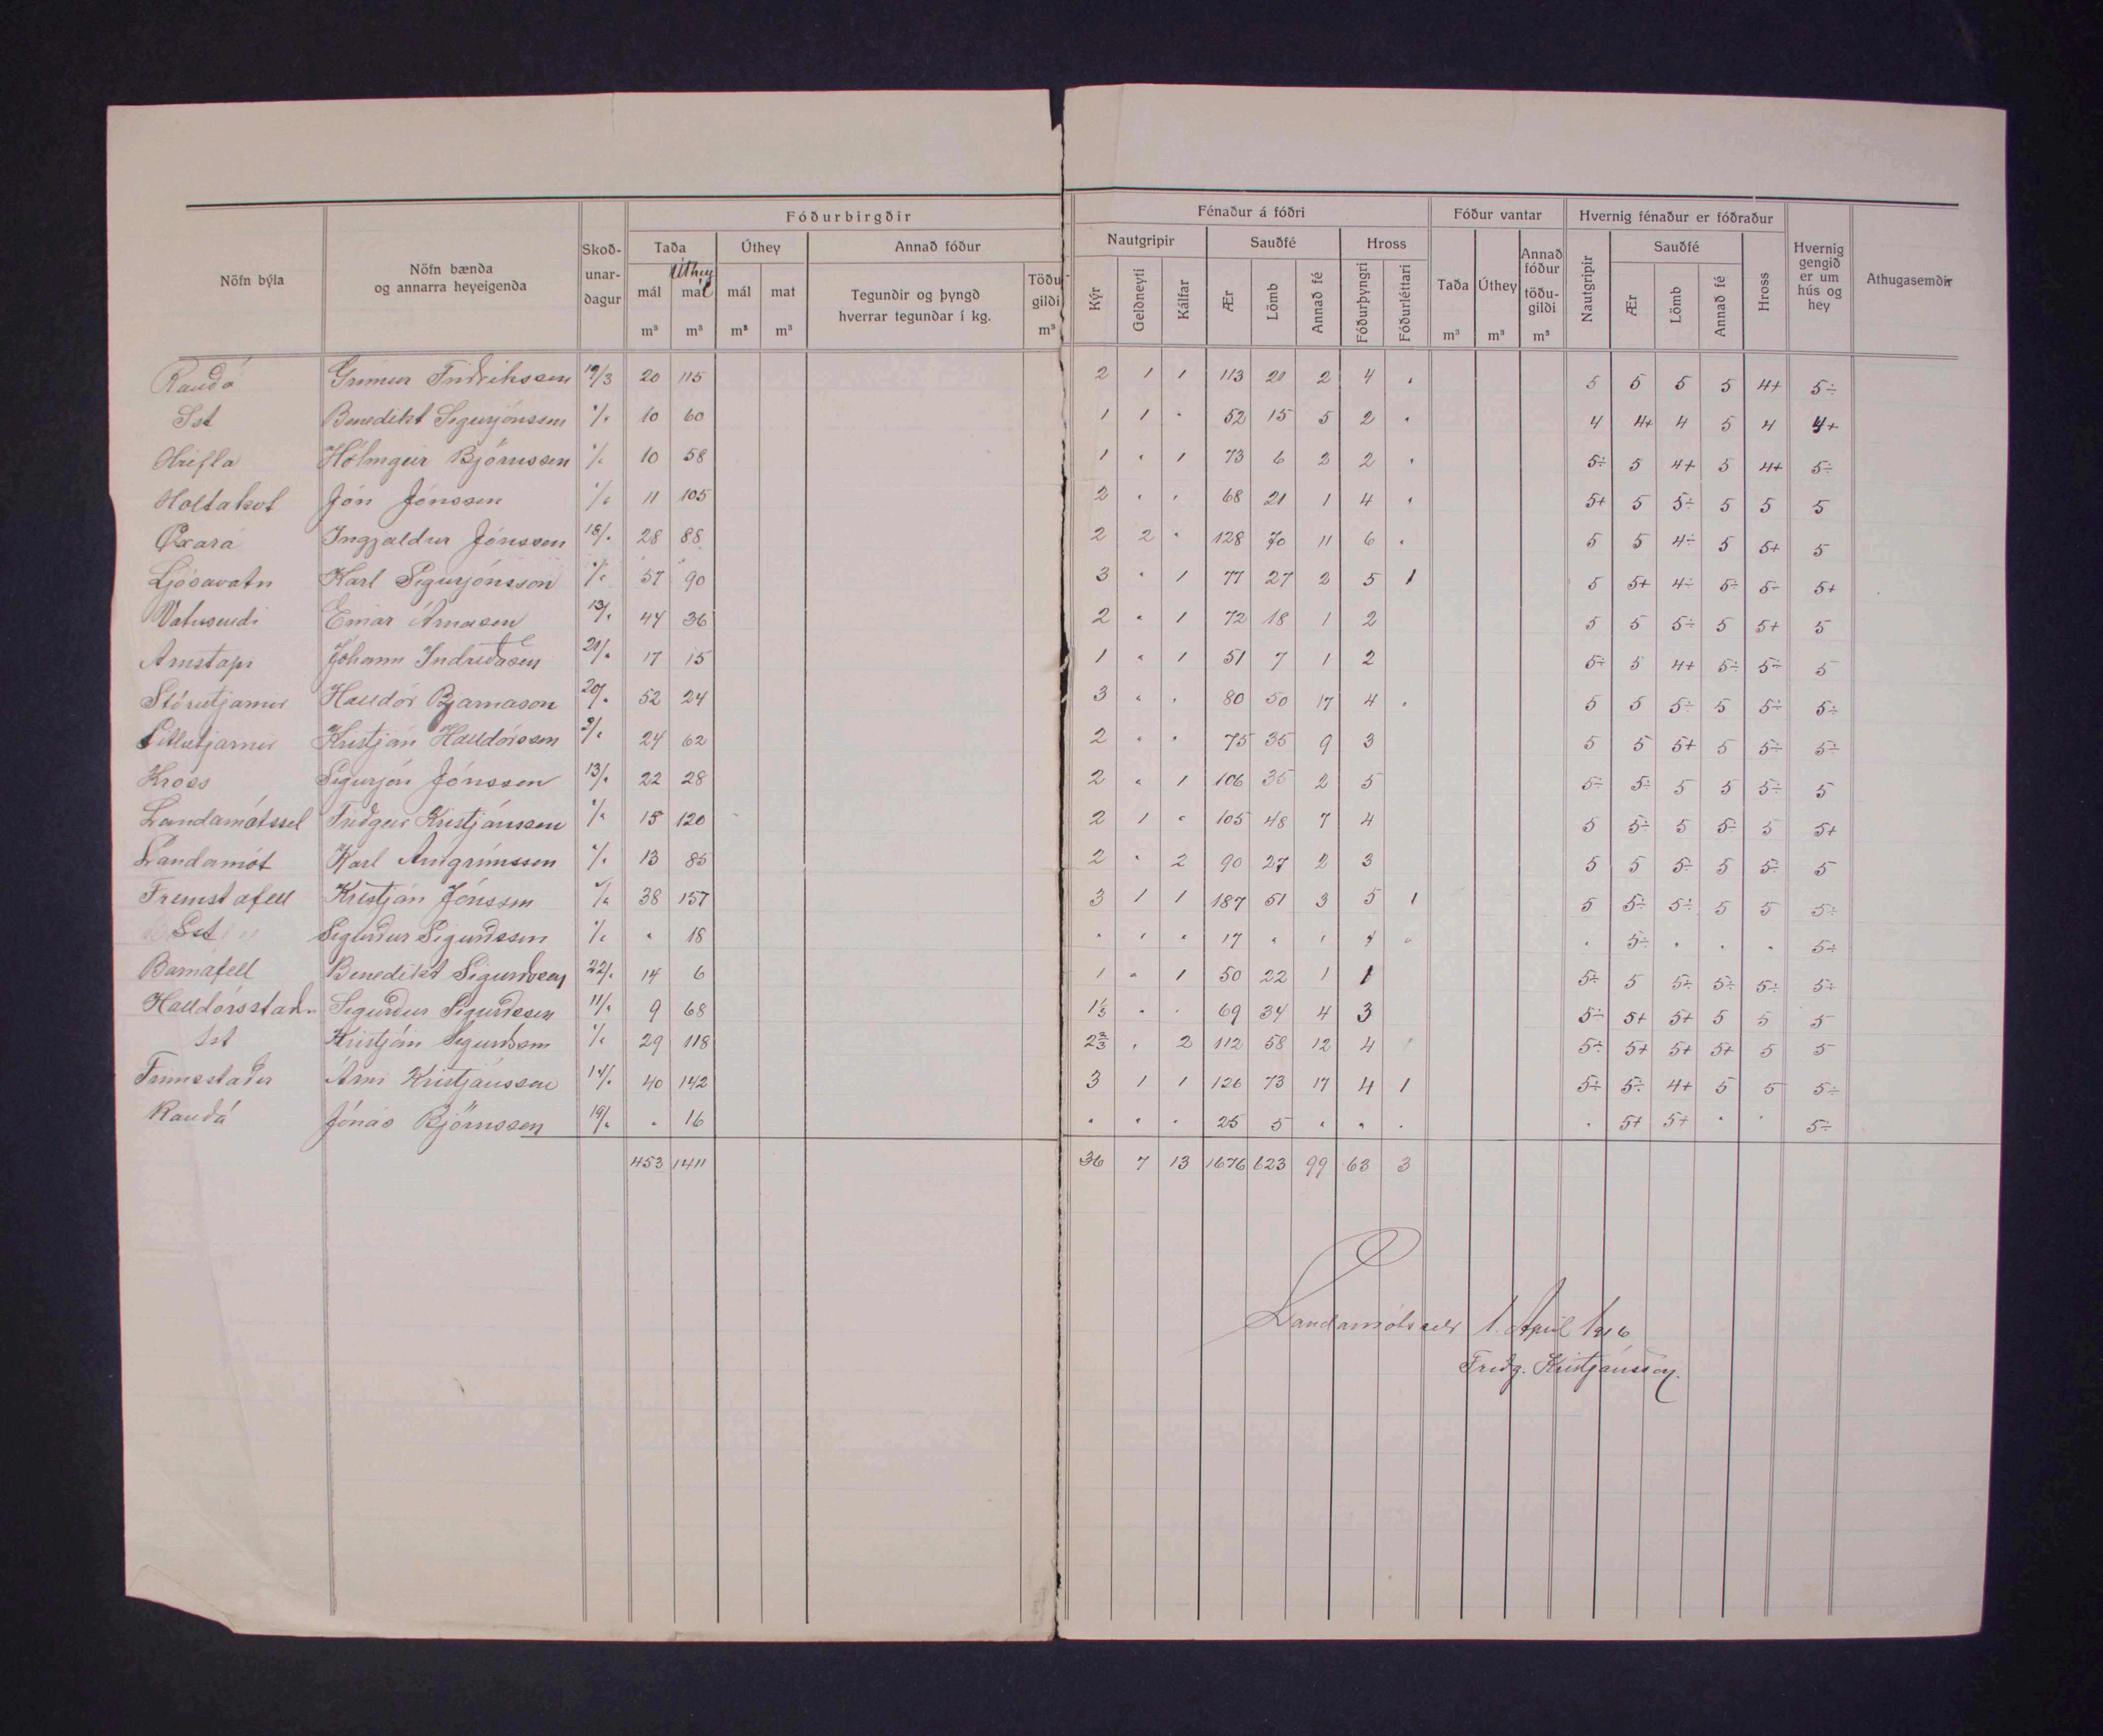 Fóðurbirgðir Fénaður á fóðri Fóður vantar Hvernig fénaður er fóðraður
Nöfn býla Nöfn bænda og annarra heyeigenda Skoð-unar-dagur Taða Úthey Annað fóður Nautgripir Sauðfé Hross Taða Úthey Annað fóður töðu-gildi Nautgripir Sauðfé Hross Hvernig gengið er um hús og hey Athugasemdir
Úthey
mál mál mál mat Tegundir og þyngd hverrar tegundar í kg. Töðu-gildi Kýr Geldneyti Kálfar Ær Lömb Annað fé Fóðurþyngri Fóðurléttari Ær Lömb Annað fé
m³ m³ m³ m³ m³ m³ m³ m³
Rauðá Grímur Friðriksson 19/3 20 115 2 1 1 113 21 2 4 " 5 5 5 5 4+ 5÷
Sst Benedikt Sigurjónsson "/" 10 60 1 1 " 52 15 5 2 " 4 4+ 4 5 4 4+
Hrifla Hólmgeir Björnsson "/" 10 58 1 " 1 73 6 2 2 " 5÷ 5 4+ 5 4+ 5÷
Holtakot Jón Jónsson "/" 11 105 2 " " 68 21 1 4 " 5+ 5 5÷ 5 5 5
Öxará Ingjaldur Jónsson 18/" 28 88 2 2 " 128 70 11 6 " 5 5 4÷ 5 5+ 5
Ljósavatn Karl Sigurjónsson "/" 57 90 3 " 1 77 27 2 5 1 5 5+ 4÷ 5÷ 5÷ 5+
Vatnsendi Einar Árnason 13/" 44 36 2 " 1 72 18 1 2 5 5 5÷ 5 5+ 5
Arnstapi Jóhann Indriðason 21/" 17 15 1 " 1 51 7 1 2 5÷ 5 4+ 5÷ 5÷ 5
Stórutjarnir Halldór Bjarnason 20/" 52 24 3 " " 80 50 17 4 " 5 5 5÷ 5 5÷ 5÷
Litlutjarnir Kristján Halldórsson "/" 24 62 2 " " 75 35 9 3 5 5 5+ 5 5÷ 5÷
Kross Sigurjón Jónsson 13/" 22 28 2 " 1 106 35 2 5 5÷ 5÷ 5 5 5÷ 5
Landamótssel Friðgeir Kristjánsson "/" 15 120 2 1 " 105 48 7 4 5 5÷ 5 5÷ 5 5+
Landamót Karl Arngrímsson "/" 13 85 2 " 2 90 27 2 3 5 5 5÷ 5 5÷ 5
Fremstafell Kristján Jónsson "/" 38 157 3 1 1 187 51 3 5 1 5 5÷ 5÷ 5 5 5÷
Sst Sigurður Sigurðsson "/" " 18 " " " 17 " " " " 5÷ " " " 5÷
Barnafell Benedikt Sigurðsson 22/" 14 6 1 " 1 50 22 1 1 5÷ 5 5÷ 5÷ 5÷ 5÷
Halldórsstaðir Sigurður Sigurðsson 11/" 9 68 1⅓ " " 69 34 4 3 5÷ 5+ 5+ 5 5 5
Sst Kristján Sigurðsson "/" 29 118 2⅔ " 2 112 58 12 4 5÷ 5+ 5+ 5+ 5 5
Finnsstaðir Árni Kristjánsson 14/" 40 142 3 1 1 126 73 17 4 1 5÷ 5÷ 4+ 5 5 5÷
Rauðá Jónas Björnsson 19/" " 16 " " " 25 5 " " " " 5+ 5+ " " 5÷
453 1411 36 7 13 1676 623 99 63 3
Landamótsseli 1. Apríl 1916
Friðg. Kristjánsson.